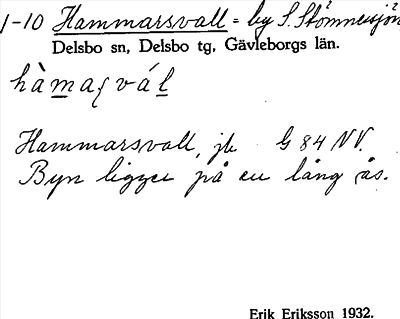 1-10 Hammarsvall = by S. Stömnesjön
Delsbo sn, Delsbo tg, Gävleborgs län.
hàmaʂvál
Hammarsvall, jb G 84 NV.
Byn ligger på en lång ås.
Erik Eriksson 1932.